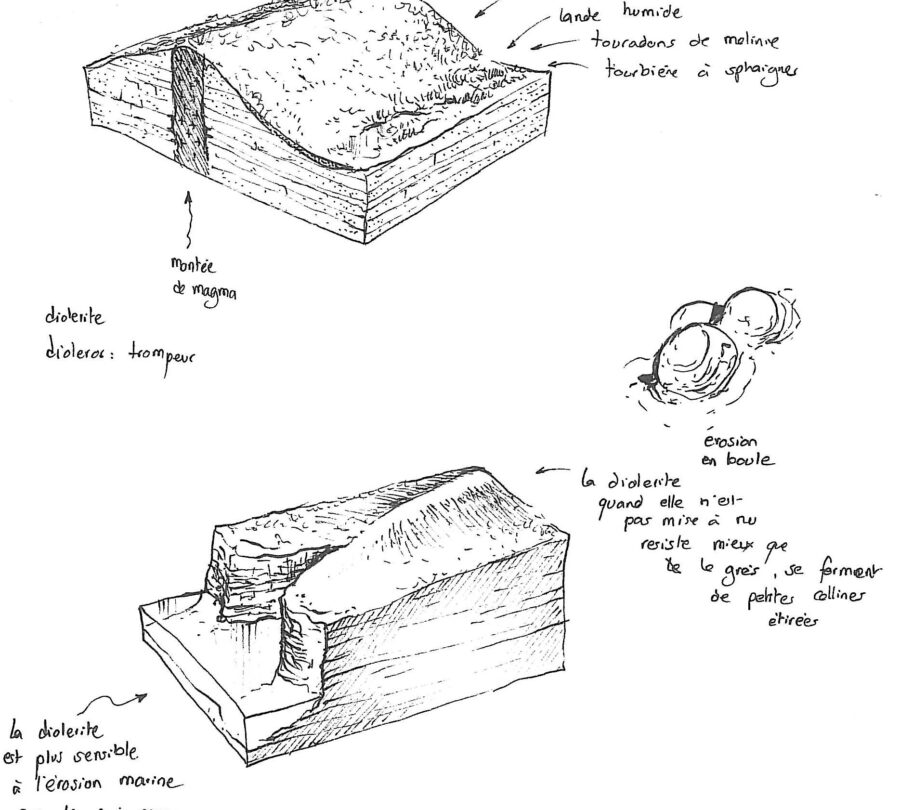 lande humide
touradons de molinie
tourbière à sphaignes
montée
de magma
diolerite
dioleros : trompeur
érosion
en boule
la diolerite
quand elle n'est
pas mise à nu
resiste mieux que
le grès, se forment
de petites collines
étirées
la diolerite
est plus sensible
à l'érosion marine